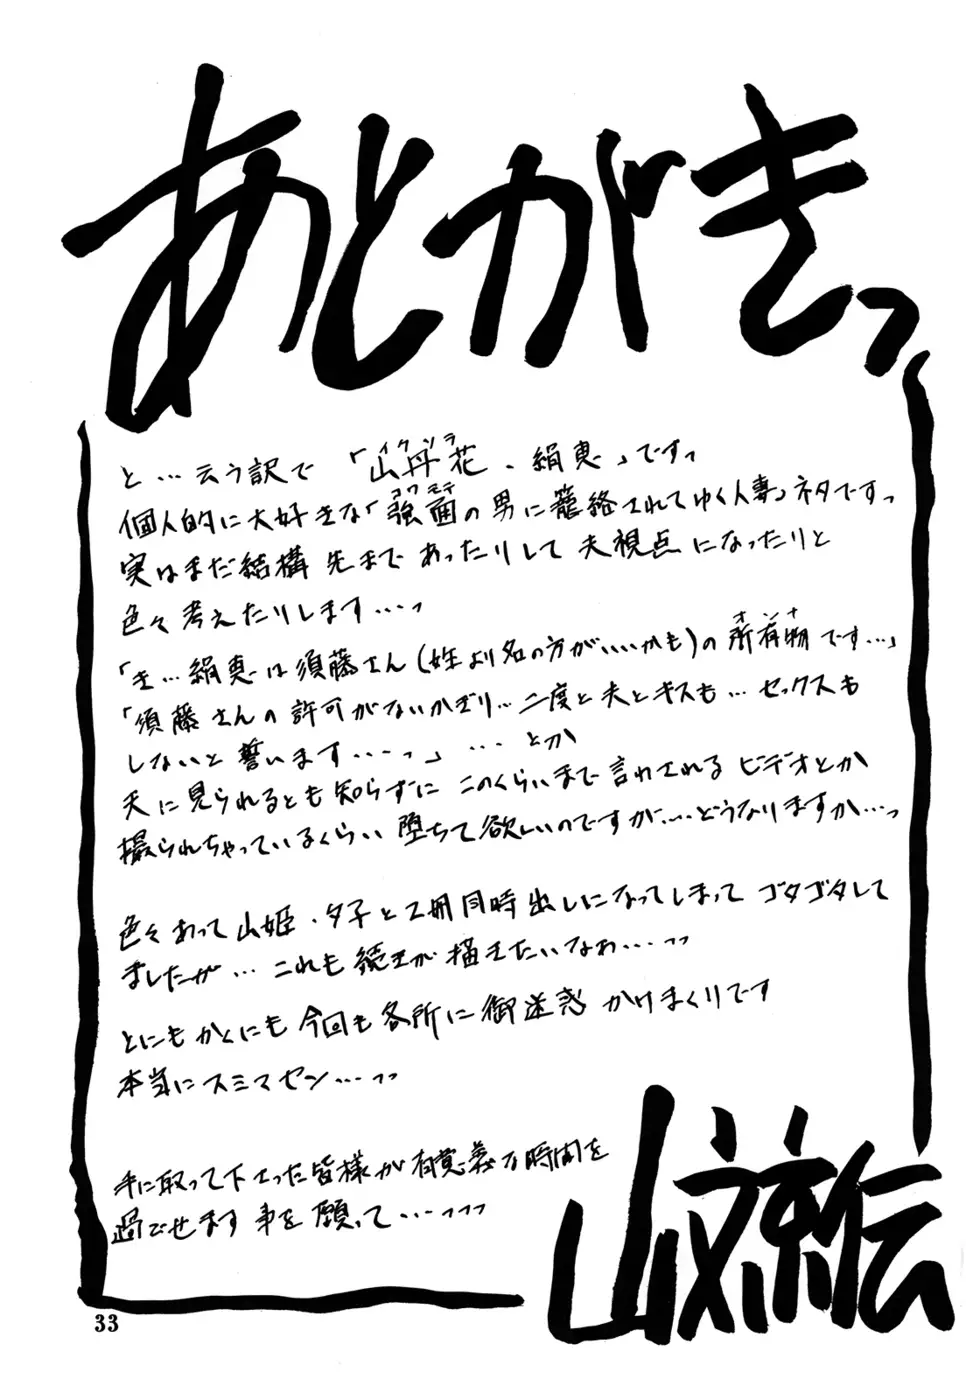 あとがきっ
と…云う訳で「山丹花、絹恵」ですっ
イクサラ
個人的に大好きな「強面の男に籠絡されてゆく人妻」ネタですっ
コワモテ
実はまだ結構先まであったりして夫視点になったりと
色々考えたりします…っ
「き…絹恵は須藤さん(姓より名の方がいいかも)の所有物です…」
オンナ
「須藤さんの許可がないかぎり…二度と夫とキスも…セックスも
しないと誓います……っ」…とか
夫に見られるとも知らずにこのくらいまで言わされるビデオとか
撮られちゃっているくらい堕ちて欲しいのですが……どうなりますか…っ
色々あって山姫・夕子と2冊同時出しになってしまってゴタゴタして
ましたが…これも続きが描きたいなぁ…っっ
とにもかくにも今回も各所に御迷惑かけまくりです
本当にスミマセン…っっ
手に取って下さった皆様が有意義な時間を
過ごせます事を願って…っっっ
山文京伝
33